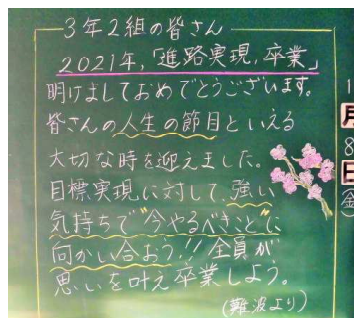 3年2組の皆さん
2021年,「進路実現,卒業」
明けましておめでとうございます。
皆さんの人生の節目といえる
大切な時を迎えました。
目標実現に対して、強い
気持ちで"今やるべきこと"に
向かい合おう!!全員が
思いを叶え卒業しよう。
(難波より)
1
月
8
日
(金)